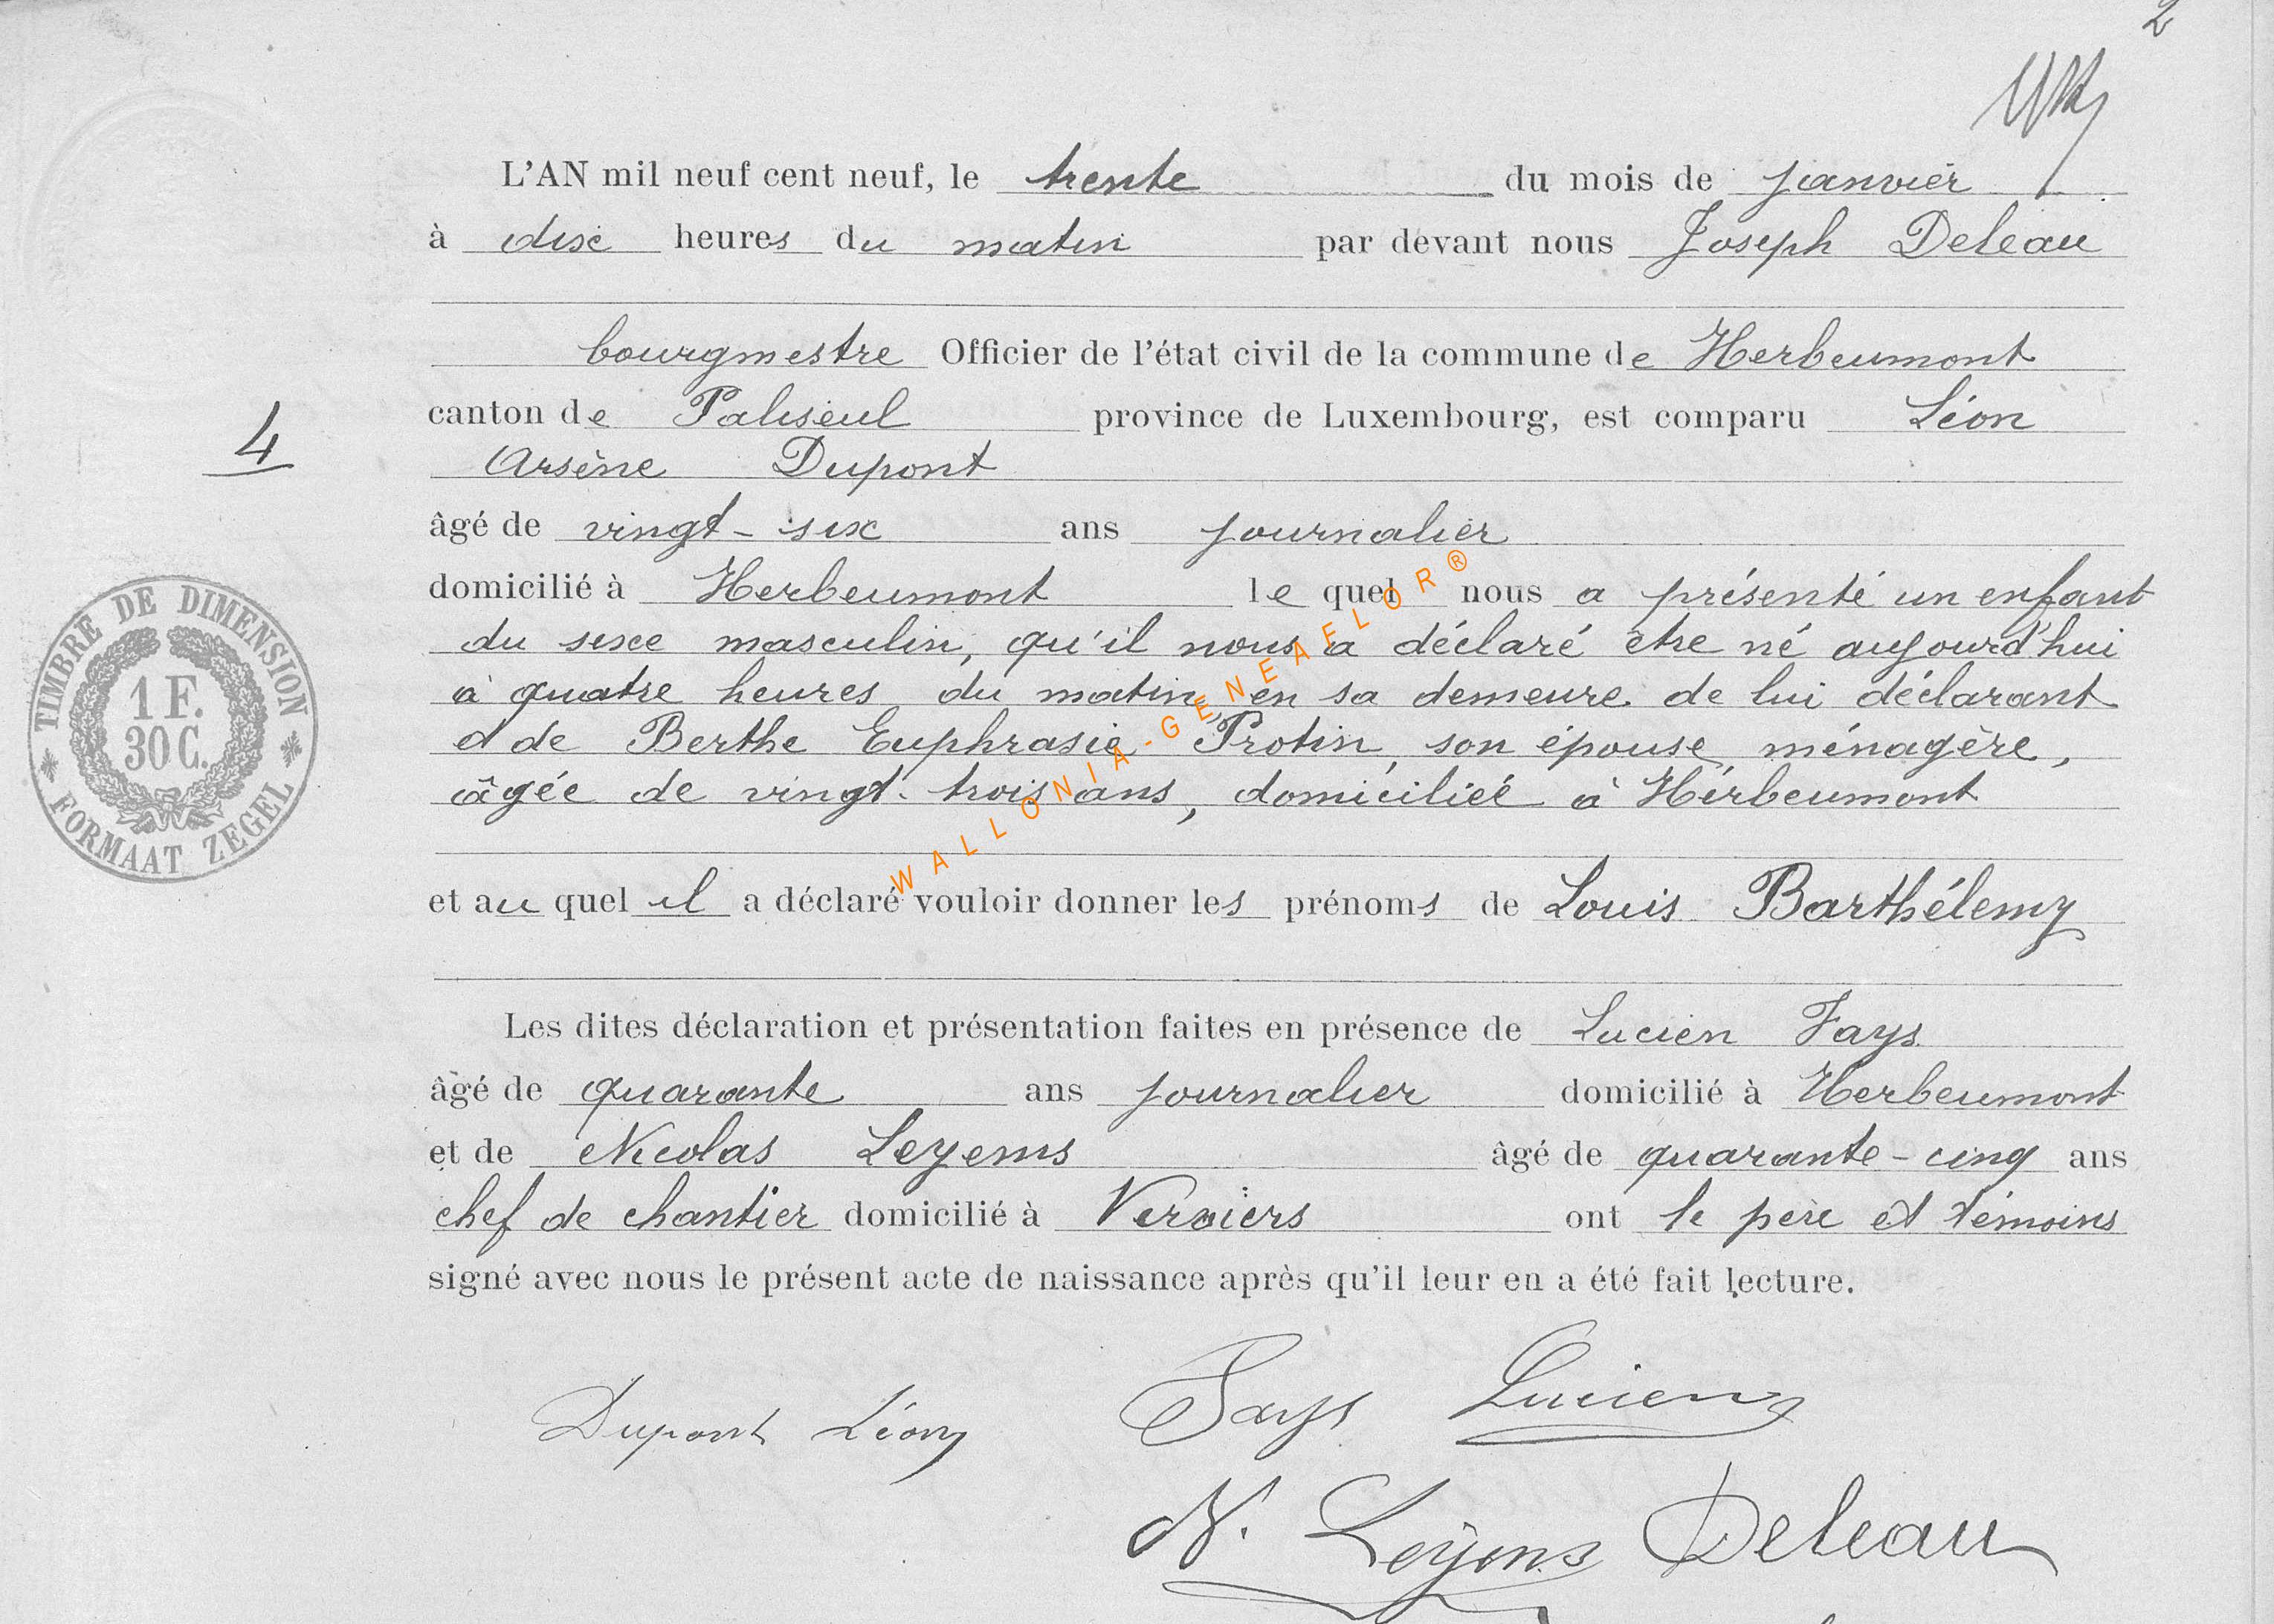 2
L'AN mil neuf cent neuf, le trente du mois de janvier
à dix heures du matin par devant nous Joseph Deleau
bourgmestre Officier de l'état civil de la commune de Herbeumont
canton de Paliseul province de Luxembourg, est comparu Léon
4
Arsène Dupont
âgé de vingt-six ans journalier
domicilié à Herbeumont le quel nous a présenté un enfant
du sexe masculin, qu'il nous a déclaré être né aujourd'hui
à quatre heures du matin, en sa demeure de lui déclarant
et de Berthe Euphrasie Protin, son épouse, ménagère,
âgée de vingt-trois ans, domiciliée à Herbeumont
TIMBRE DE DIMENSION
1 F.
30 C.
FORMAAT ZEGEL
WALLONIA-GENEALOR®
et au quel il a déclaré vouloir donner les prénoms de Louis Barthélemy
Les dites déclaration et présentation faites en présence de Lucien Fays
âgé de quarante ans journalier domicilié à Herbeumont
et de Nicolas Leyens âgé de quarante-cinq ans
chef de chantier domicilié à Verviers ont le père et témoins
signé avec nous le présent acte de naissance après qu'il leur en a été fait lecture.
Dupont Léon Fays Lucien
N. Leyens Deleau